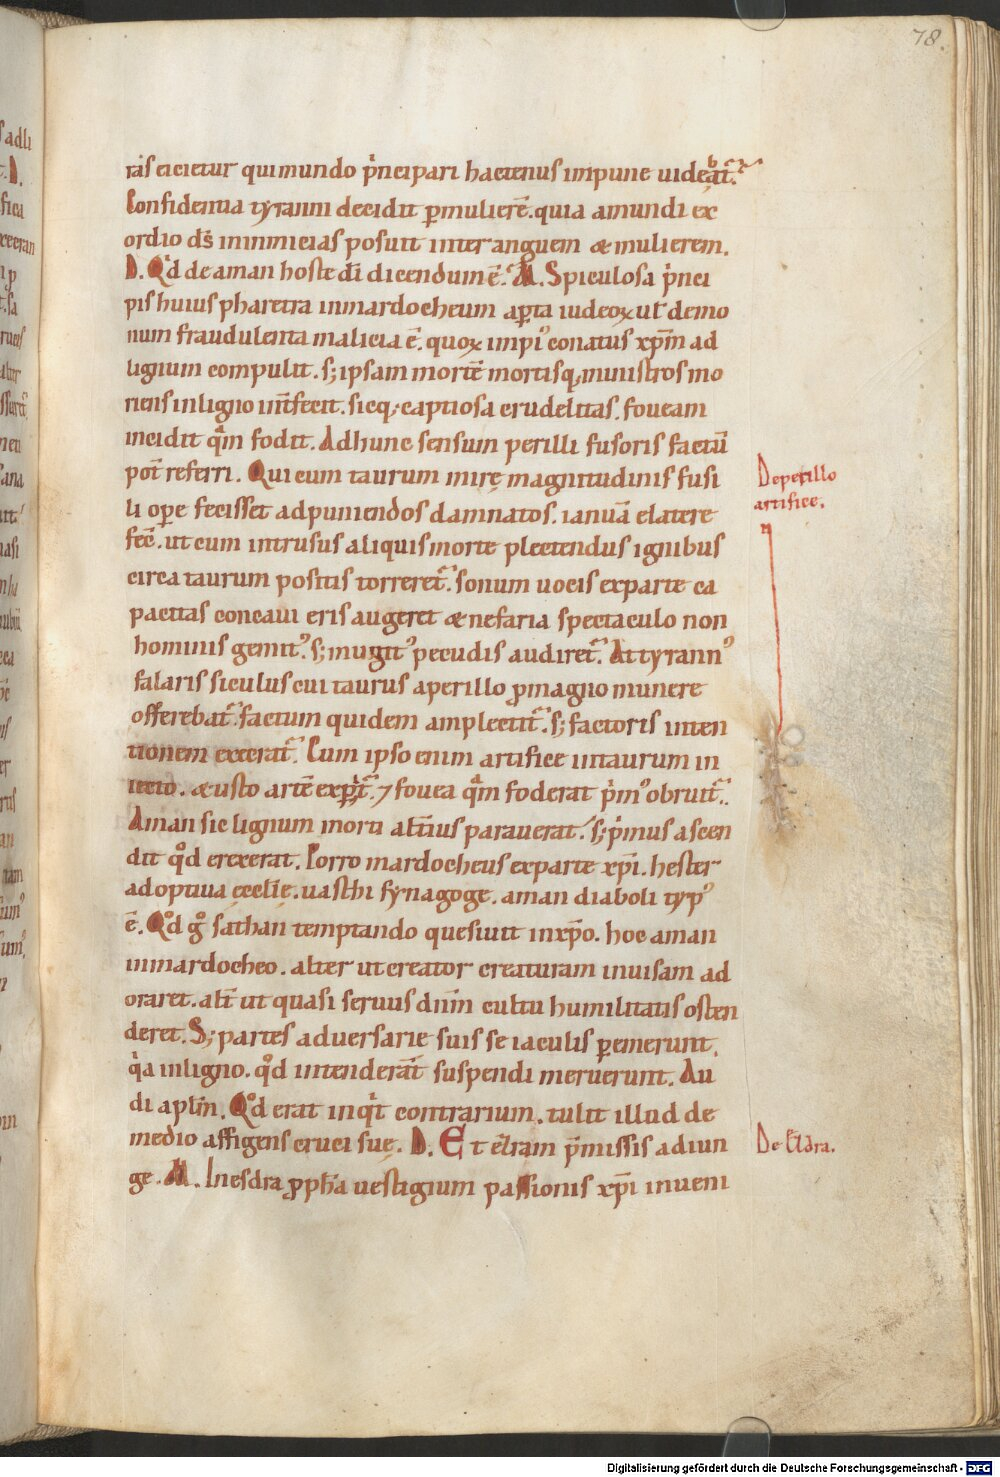 78.
ras eicietur qui mundo p̃ncipari hactenus inpune uidebat̃.
Confidentia tyranni decidit p̱mulierẽ. quia amundi ex
ordio dš inimicias posuit inter anguem & mulierem.
D. Qd̓ de aman hoste dĩ dicendum ẽ. M. Spiculosa p̓nci
pis huius pharetra inmardocheum aꝑta iudeoꝝ ul̃ demo
num fraudulenta malicia ẽ. quoꝝ impi᾽ conatus xp̃m ad
lignum compulit. s; ipsam mortẽ mortisq; ministros mo
riens inligno int̃fecit. sicq; captiosa crudelitas. foueam
incidit q̃m fodit. Adhunc sensum perilli fusoris factũ
pot̃ referri. Qui cum taurum mirę magnitudinis fusi
li oꝑe fecisset adpuniendos damnatos. ianuã elatere
fec̃. ut cum intrusus aliquis morte plectendus ignibus
circa taurum positis torreret̃. sonum uocis exparte ca
pacitas concaui eris augeret & nefaria spectaculo non
hominis gemit᾽. s; mugit᾽ pecudis audiret̃. At tyrann᾽
falaris siculus cui taurus aperillo ꝓmagno munere
offerebat̃. factum quidem amplectit̃. s; factoris inten
tionem execrat̃. Cum ipso enim artifice intaurum in
iecto. & usto artẽ exꝑit̃. ⁊ fouea q̃m foderat p̓m᾽ obruit̃.
Aman sic lignum morti alt̃ius parauerat. s; p̓mus ascen
dit qd̊ erexerat. Porro mardocheus exparte xp̃i. hester
adoptiua ęcclię. uasthi synagoge. aman diaboli typ᾽
ẽ. Qd̊ g̊ sathan temptando quesiuit inxp̃o. hoc aman
inmardocheo. alter ut creator creaturam inuisam ad
oraret. alt̃ ut quasi seruus dñm cultu humilitatis osten
deret. S; partes aduersarie suis se iaculis ꝑemerunt.
q̓a inligno. qd̊ intenderat̃ suspendi meruerunt. Au
di aplm̃. Qd̊ erat inq̓t contrarium. tulit illud de
medio affigens cruci suę. D. Et esdram p̃missis adiun
ge. M. Inesdra ꝓph̃a uestigium passionis xp̃i inueni
De perillo
artifice.
De Esdra.
Digitalisierung gefördert durch die Deutsche Forschungsgemeinschaft - DFG